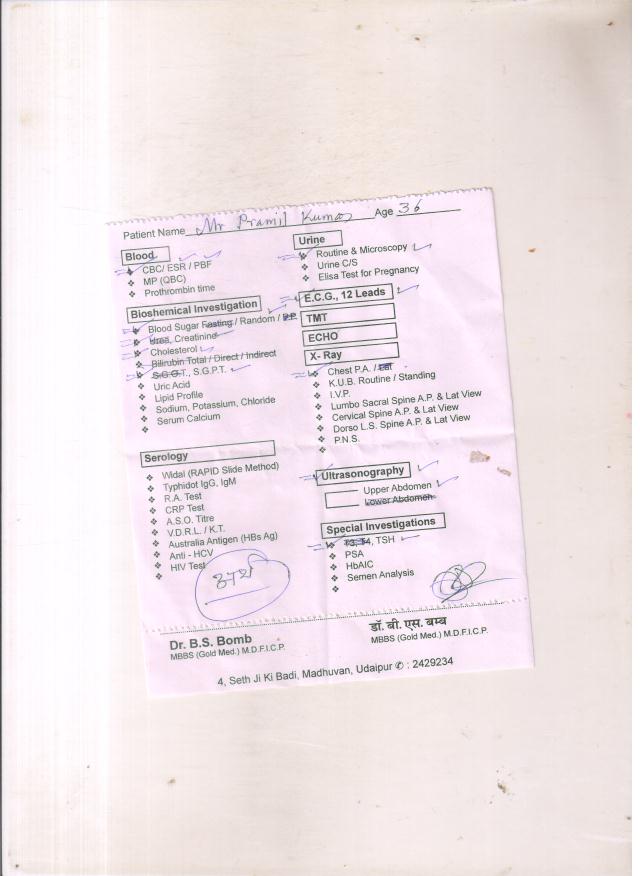 Patient Name Mr Pramil Kumar Age 36
Blood
CBC/ ESR / PBF
MP (QBC)
Prothrombin time
Bioshemical Investigation
Blood Sugar Fasting / Random / P.P.
Urea, Creatinine
Cholesterol
Bilirubin Total / Direct / Indirect
S.G.O.T., S.G.P.T.
Uric Acid
Lipid Profile
Sodium, Potassium, Chloride
Serum Calcium
Serology
Widal (RAPID Slide Method)
Typhidot IgG, IgM
R.A. Test
CRP Test
A.S.O. Titre
V.D.R.L. / K.T.
Australia Antigen (HBs Ag)
Anti - HCV
HIV Test
Urine
Routine & Microscopy
Urine C/S
Elisa Test for Pregnancy
E.C.G., 12 Leads
TMT
ECHO
X- Ray
Chest P.A. /
K.U.B. Routine / Standing
I.V.P.
Lumbo Sacral Spine A.P. & Lat View
Cervical Spine A.P. & Lat View
Dorso L.S. Spine A.P. & Lat View
P.N.S.
Ultrasonography
Upper Abdomen
Lower Abdomen
Special Investigations
T3, T4, TSH
PSA
HbAIC
Semen Analysis
Dr. B.S. Bomb
MBBS (Gold Med.) M.D.F.I.C.P.
डॉ. बी. एस. बम्ब
MBBS (Gold Med.) M.D.F.I.C.P.
4, Seth Ji Ki Badi, Madhuvan, Udaipur ✆ : 2429234